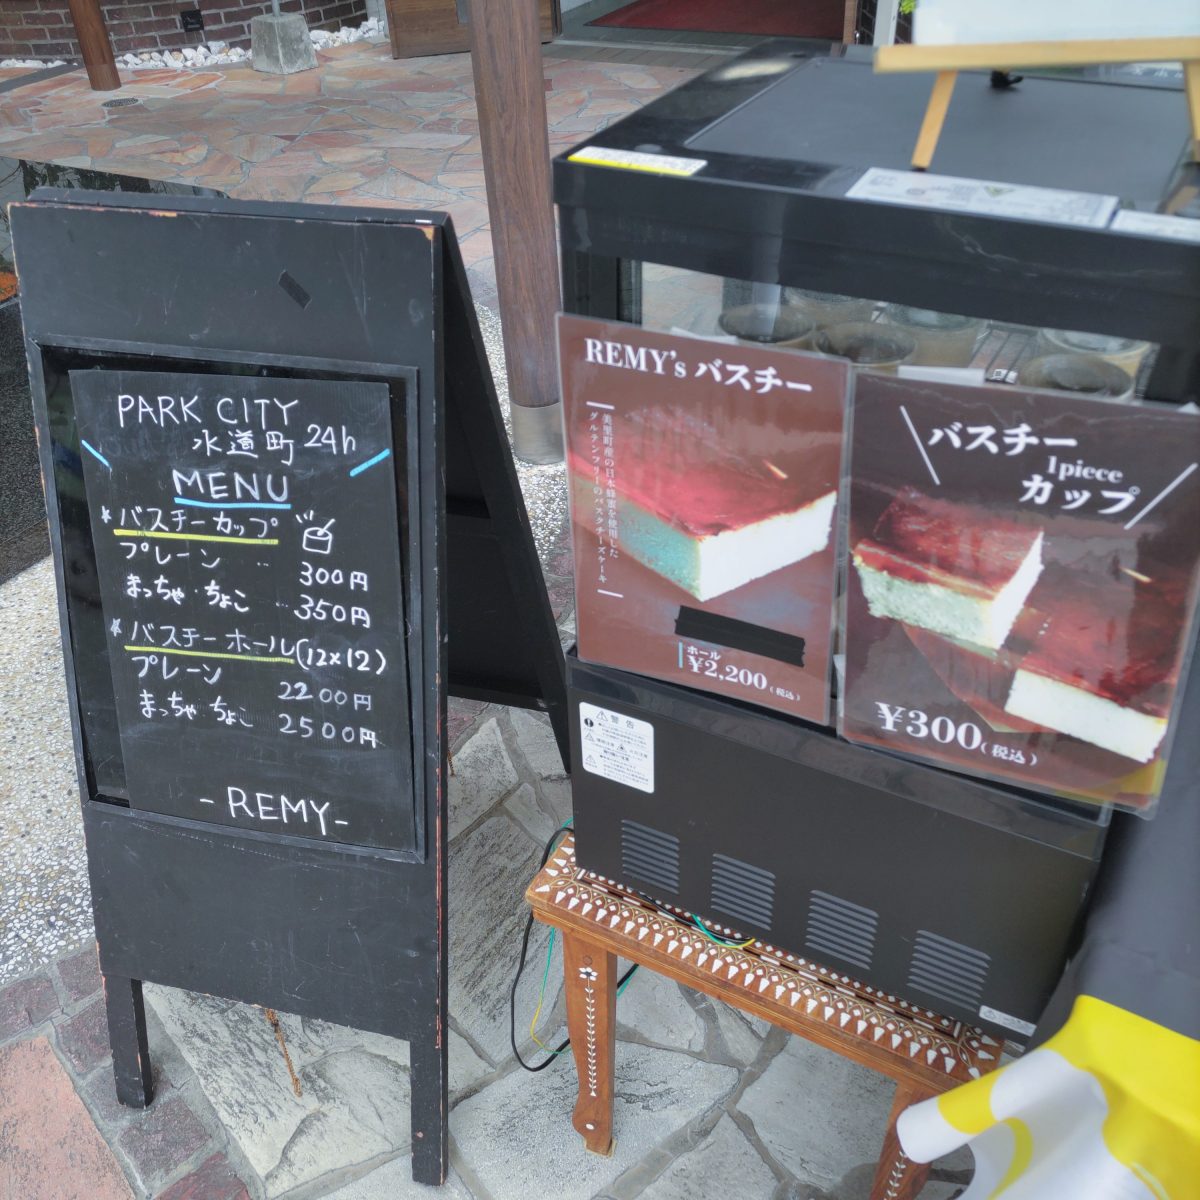 PARK CITY
水道町 24h
MENU
*バスチーカップ
プレーン ‥ 300円
まっちゃ・ちょこ ‥ 350円
*バスチーホール(12×12)
プレーン 2200円
まっちゃ・ちょこ 2500円
- REMY -
REMY's バスチー
美里町産の日本蜂蜜を使用した
グルテンフリーのバスクチーズケーキ
ホール
¥2,200(税込)
バスチー
1piece
カップ
¥300(税込)
警告